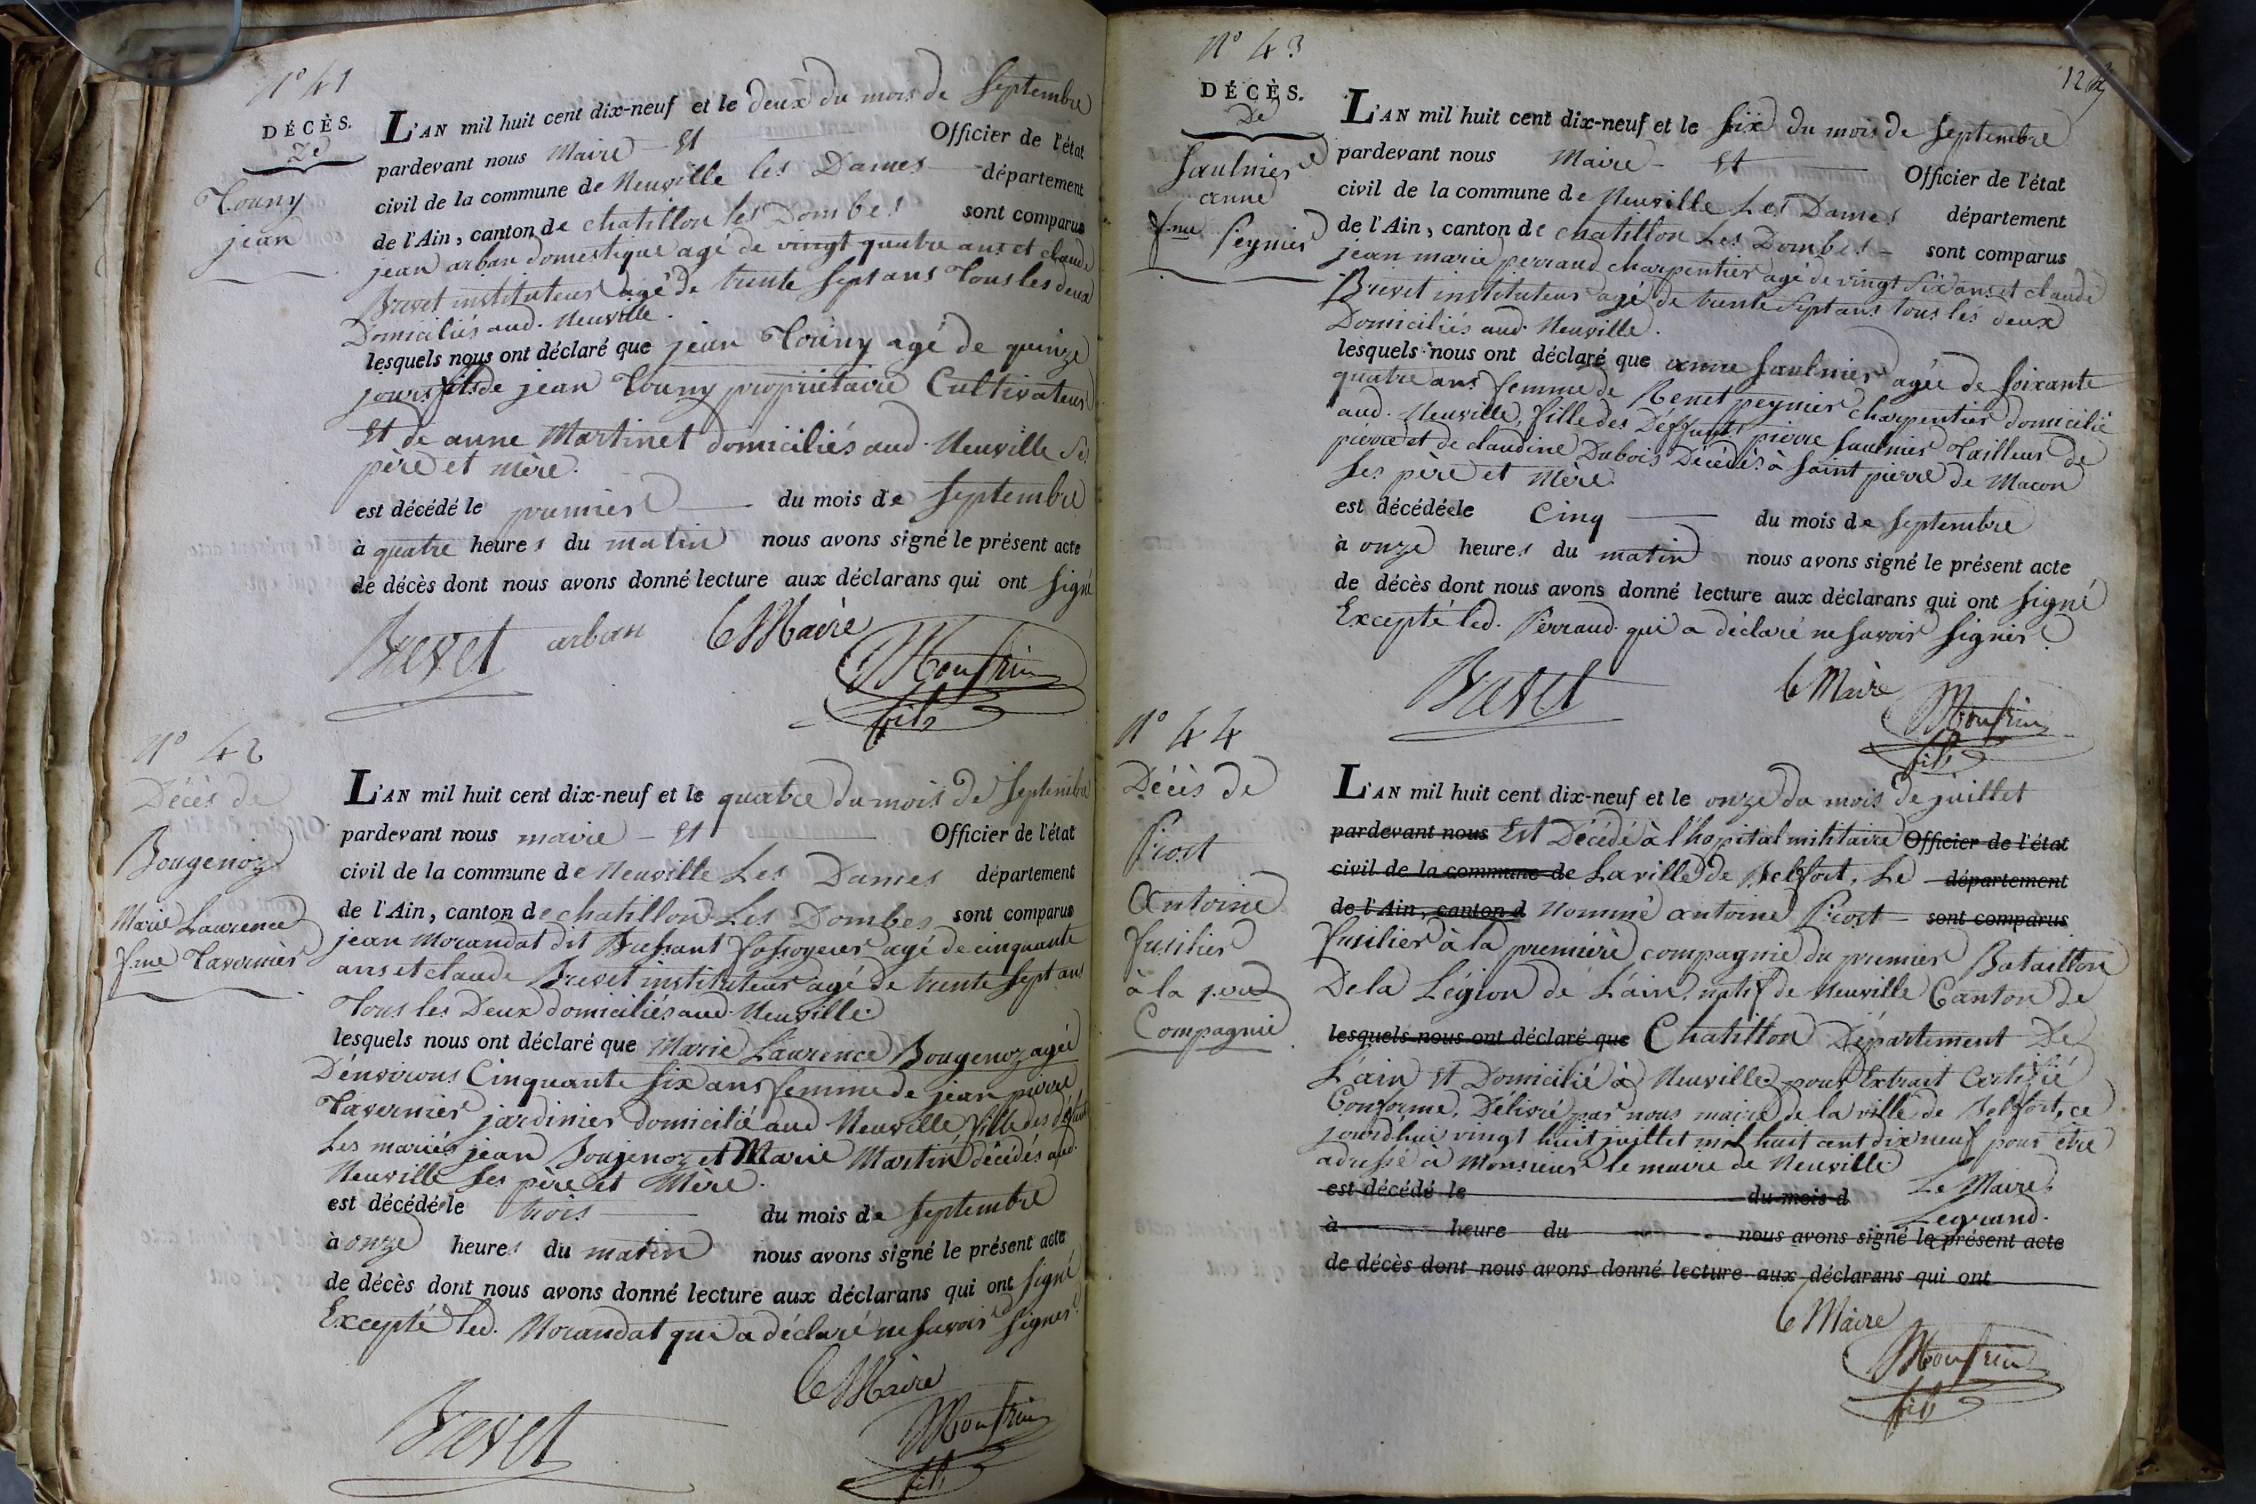 N° 41
DÉCÈS.
De
Touny
jean
L'AN mil huit cent dix-neuf et le deux du mois de Septembre
pardevant nous Maire Et Officier de l'état
civil de la commune de Neuville les Dames département
de l'Ain, canton de chatillon les Dombes sont comparus
jean arban domestique agé de vingt quatre ans et claude
Brevet instituteur agé de trente Sept ans Tous les deux
Domiciliés aud. Neuville.
lesquels nous ont déclaré que jean Touny agé de quinze
jours fils de jean Touny propriétaire Cultivateur
Et de anne Martinet domiciliés aud. Neuville Ses
père et mère.
est décédé le premier du mois de Septembre
à quatre heures du matin nous avons signé le présent acte
de décès dont nous avons donné lecture aux déclarans qui ont Signé
Brevet arban le Maire
Monfrin
fils
N° 42
Décès de
Bougenoz
Marie Laurence
fme Tavernier
L'AN mil huit cent dix-neuf et le quatre du mois de Septembre
pardevant nous maire Et Officier de l'état
civil de la commune de Neuville Les Dames département
de l'Ain, canton de chatillon Les Dombes sont comparus
jean Morandat dit Bressant fossoyeur agé de cinquante
ans et claude Brevet instituteur agé de trente Sept ans
Tous les Deux domiciliés aud. Neuville.
lesquels nous ont déclaré que Marie Laurence Bougenoz agée
D'environs Cinquante Six ans femme de jean pierre
Tavernier jardinier domicilié aud Neuville fille des défunts
Les mariés jean Bougenoz et Marie Martin décédés aud.
Neuville Ses père et Mère.
est décédée le trois du mois de Septembre
à onze heures du matin nous avons signé le présent acte
de décès dont nous avons donné lecture aux déclarans qui ont Signé
Excepté led. Morandat qui a déclaré ne Savoir Signer.
le Maire
Brevet Monfrin
fils
129
N° 43
DÉCÈS.
De
Saulnier
anne
fme Peynier
L'AN mil huit cent dix-neuf et le Six du mois de Septembre
pardevant nous Maire Et Officier de l'état
civil de la commune de Neuville Les Dames département
de l'Ain, canton de chatillon Les Dombes sont comparus
jean marie perraud charpentier agé de vingt Six ans et claude
Brevet instituteur agé de trente Sept ans tous les deux
Domiciliés aud. Neuville.
lesquels nous ont déclaré que anne Saulnier agée de Soixante
quatre ans femme de Benet peynier charpentier domicilié
aud. Neuville, fille des Deffunts pierre Saulnier Tailleur de
pierre et de claudine Dubois Décédés à Saint pierre de Macon
Ses père et Mère.
est décédée le Cinq du mois de Septembre
à onze heures du matin nous avons signé le présent acte
de décès dont nous avons donné lecture aux déclarans qui ont Signé
Excepté led. Perraud qui a déclaré ne Savoir Signer.
Brevet le Maire
Monfrin
fils
N° 44
Décès de
Prost
Antoine
fusilier
à la pre
Compagnie
L'AN mil huit cent dix-neuf et le onze du mois de juillet
pardevant nous Est Décédé à l'hopital militaire Officier de l'état
civil de la commune de La ville de Belfort, Le département
de l'Ain, canton d Nommé antoine Prost sont comparus
fusilier à la première compagnie du premier Bataillon
De la Légion de L'ain, natif de Neuville Canton de
lesquels nous ont déclaré que Chatillon Département De
L'ain Et Domicilié à Neuville, pour Extrait Certifié
Conforme, Délivré par nous maire de la ville de Belfort, ce
jourd'hui vingt huit juillet mil huit cent dix neuf pour être
adressé à Monsieur le maire de Neuville
est décédé le du mois d Le Maire,
Legrand.
à heure du nous avons signé le présent acte
de décès dont nous avons donné lecture aux déclarans qui ont
le Maire
Monfrin
fils